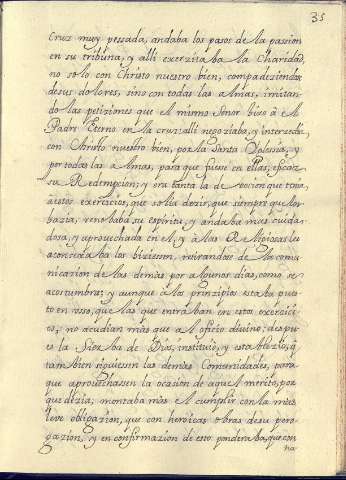 35
Cruz muy pessada, andaba los pasos de la passion
en su tribuna, y alli exerzitaba la Charidad,
no solo con Christo nuestro bien, compadeziendose
de sus dolores, sino con todas las almas, imitan
do las petiziones que el mismo Señor hizo à el
Padre Eterno en la cruz alli negoziaba, y interzedia
con Christo nuestro bien, por la Santa Yglesia, y
por todas las almas, para que fuese en ellas, eficaz
su Redempcion; y era tanta la devocion que tenia
a estos exercizios, que solia dezir, que siempre que los
hazia, renobaba su espiritu, y andaba mas cuida
dosa, y aprovechada en el, y à las Religiosas les
aconsejaba los hiziesen, retirandose de la comu
nicazion de las demàs por algunos dias, como se
acostumbra; y aunque à los prinzipios estaba pues
to en usso, que las que entraban en estos exercizi
os, no acudian màs que al ofizio divino; despu
es la Sierba de Dios, instituiò, y establezio, q̃
tambien siguiessen las demàs Comunidades, para
que aprovechassen la ocasion de aquel merito, por
que dezia; montaba màs el cumplir con la màs
leve obligazion, que con heroicas obras de su pero-
gazion, y en confirmazion de esto ponderaba, que con
ha